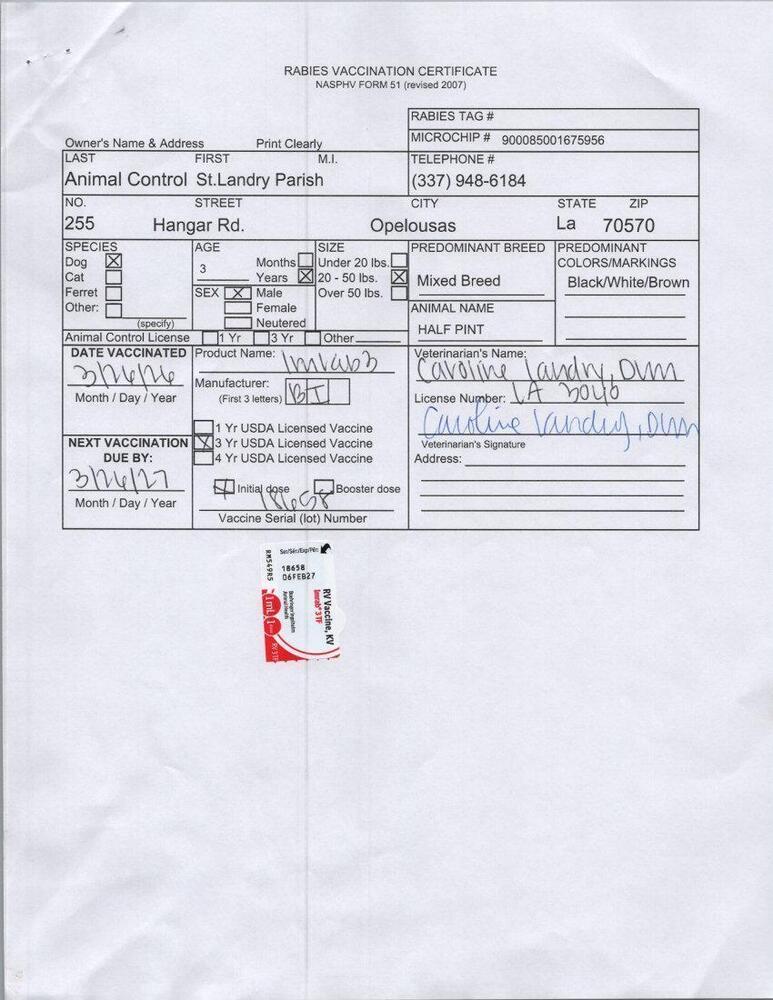 RABIES VACCINATION CERTIFICATE
NASPHV FORM 51 (revised 2007)
RABIES TAG #
Owner's Name & Address Print Clearly
MICROCHIP # 900085001675956
LAST FIRST M.I. TELEPHONE #
Animal Control St.Landry Parish (337) 948-6184
NO. STREET CITY STATE ZIP
255 Hangar Rd. Opelousas La 70570
SPECIES AGE SIZE PREDOMINANT BREED PREDOMINANT
COLORS/MARKINGS
Dog X 3 Months Under 20 lbs.
Cat Years X 20 - 50 lbs. X Mixed Breed Black/White/Brown
Ferret SEX X Male Over 50 lbs.
Other: Female ANIMAL NAME
(specify) Neutered HALF PINT
Animal Control License 1 Yr 3 Yr Other
DATE VACCINATED Product Name: Imrab3 Veterinarian's Name:
3/26/26 Caroline Landry, DVM
Manufacturer: BI
Month / Day / Year (First 3 letters) License Number: LA 3040
1 Yr USDA Licensed Vaccine Caroline Landry, DVM
NEXT VACCINATION X 3 Yr USDA Licensed Vaccine Veterinarian's Signature
DUE BY: 4 Yr USDA Licensed Vaccine Address:
3/26/27
X Initial dose Booster dose
Month / Day / Year 18658
Vaccine Serial (lot) Number
Ser/Sér/Exp/Pér:
18658
06FEB27
RM549R5
RV Vaccine, KV
Imrab® 3 TF
Boehringer Ingelheim
Animal Health
1 mL
RV 3 TF